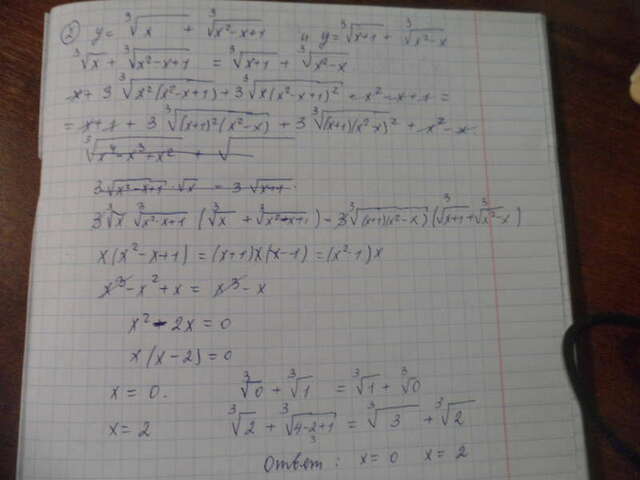 ② y = ∛x + ∛(x²-x+1) и y = ∛(x+1) + ∛(x²-x)
∛x + ∛(x²-x+1) = ∛(x+1) + ∛(x²-x)
x + 3∛(x²(x²-x+1)) + 3∛(x(x²-x+1)²) + x²-x+1 =
= x+1 + 3∛((x+1)²(x²-x)) + 3∛((x+1)(x²-x)²) + x²-x
∛(x⁴-x³+x²) + √
3√(x²-x+1) · √x = 3√(x+1)
3∛x ∛(x²-x+1) (∛x + ∛(x²-x+1)) = 3∛((x+1)(x²-x)) (∛(x+1) + ∛(x²-x))
x(x²-x+1) = (x+1)x(x-1) = (x²-1)x
x³-x²+x = x³-x
x²-2x = 0
x(x-2) = 0
x = 0. ∛0 + ∛1 = ∛1 + ∛0
x = 2 ∛2 + ∛(4-2+1) = ∛3 + ∛2
3
Ответ: x = 0 x = 2